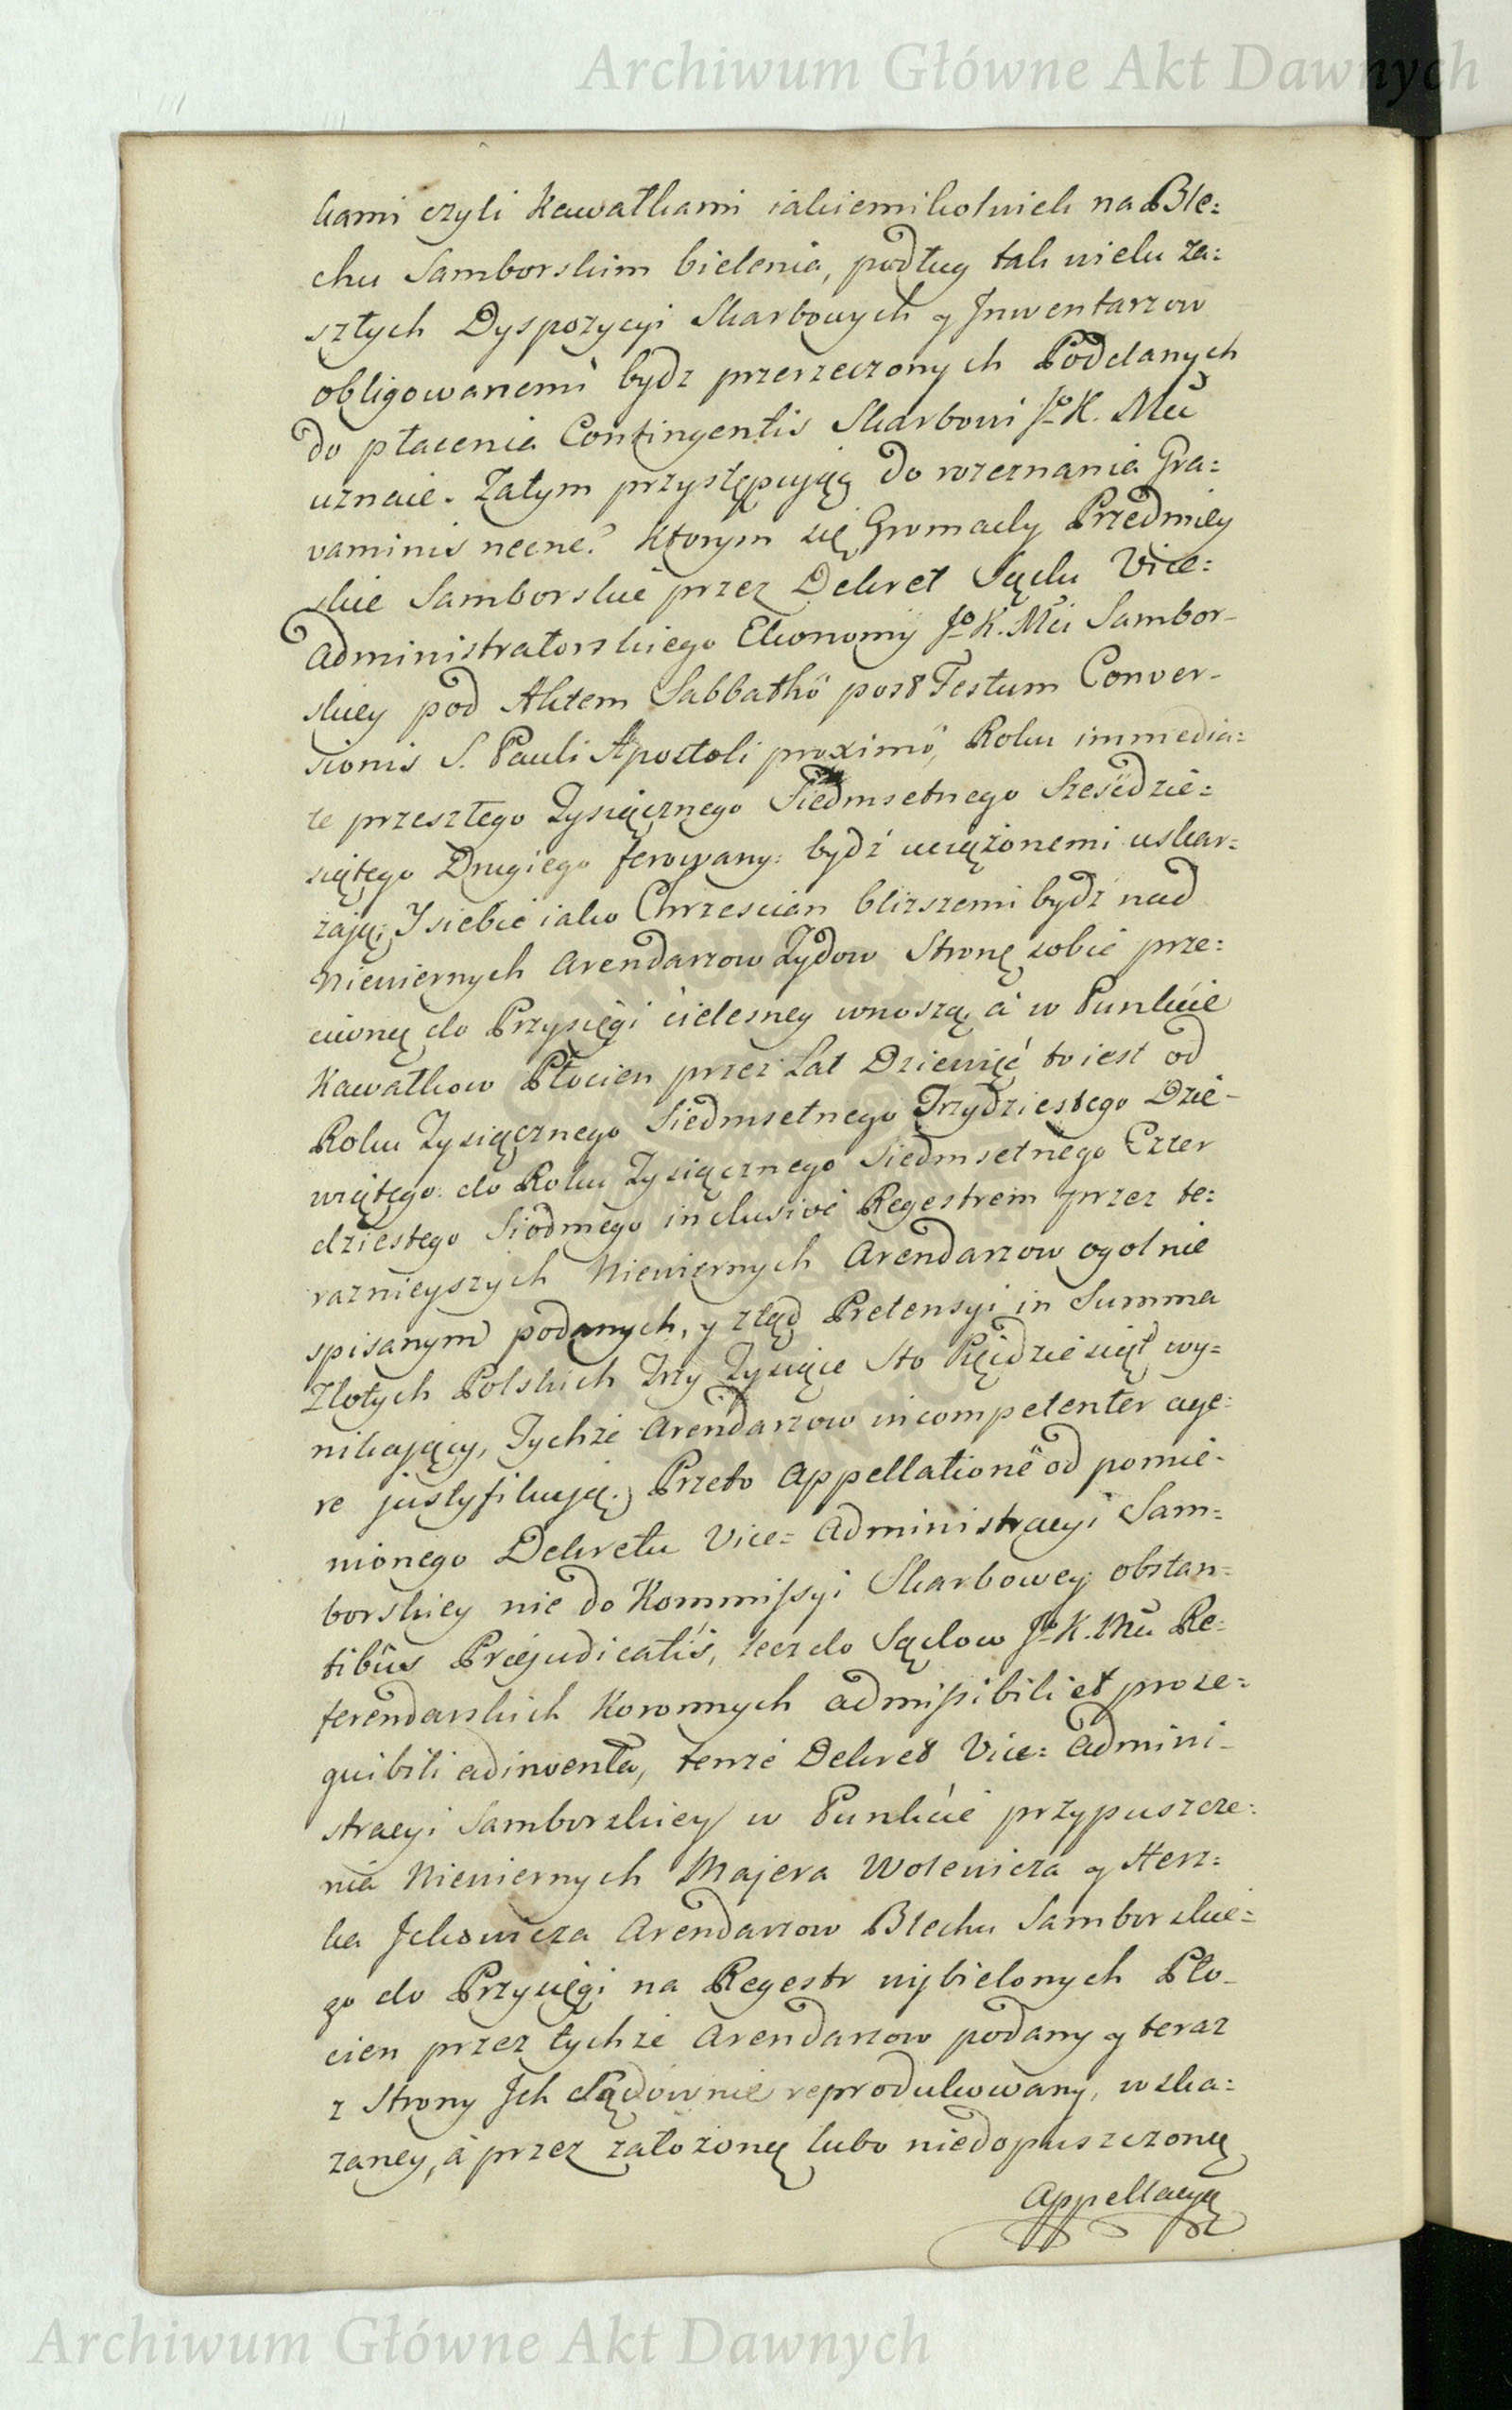 Archiwum Główne Akt Dawnych
kami czyli Kawałkami iakiemikolwiek na Ble=
chu Samborskim bielenia, podług tak wielu za=
szłych Dyspozycyi Skarbowych y Jnwentarzow
obligowanemi bydz przerzeczonych Poddanych
do płacenia Contingentis Skarbowi Jo K. Mci
uznaie. Zatym przystępuiąc do rozeznania Gra=
vaminis necne? Ktorym się Gromady Przedmiey
skie Samborskie przez Dekret Sądu Vice=
Administratorskiego Ekonomij Jo K. Mci Sambor-
skiey pod Aktem Sabbathô post Festum Conver-
sionis S. Pauli Apostoli proximô, Roku immedia=
te przeszłego Tysiącznego Siedmsetnego Sześćdzie=
siątego Drugiego ferowany: bydź uciążonemi uskar=
zają; Y siebie iako Chrzescian blizszemi bydź nad
Niewiernych Arendarzow Zydow Stronę sobie prze=
ciwną do Przysięgi cielesney wnoszą, á w Punkcie
Kawałkow Płocien przez Lat Dziewięć to iest od
Roku Tysiącznego Siedmsetnego Trzydziestego Dzie-
wiątego: do Roku Tysiącznego Siedmsetnego Czter
dziestego Siodmego inclusivè Regestrem przez te=
raznieyszych Niewiernych Arendarzow ogolnie
spisanym podanych, y ztąd Pretensyi in Summa
Złotych Polskich Trzy Tysiące Sto Pięćdziesiąt wy=
nikaiący, Tychże Arendarzow incompetenter age=
re justyfikują. Przeto Appellationē od pomie-
nionego Dekretu Vice= Administracyi Sam=
borskiey nie do Kommissyi Skarbowey obstan=
tibûs Præjudicatis, lecz do Sądow Jo K. Mci Re=
ferendarskich Koronnych admissibili et prose=
quibili adinventa, tenże Dekret Vice= Admini-
stracyi Samborskiey w Punkcie przypuszcze=
nia Niewiernych Majera Wolewicza y Hersz=
ka Jckowicza Arendarzow Blechu Samborskie=
go do Przysięgi na Regestr wybielonych Pło-
cien przez tychże Arendarzow podany y teraz
z Strony Jch Sądownie reprodukowany, wska=
zaney, á przez założoną lubo niedopuszczoną
Appellacyą
Archiwum Główne Akt Dawnych